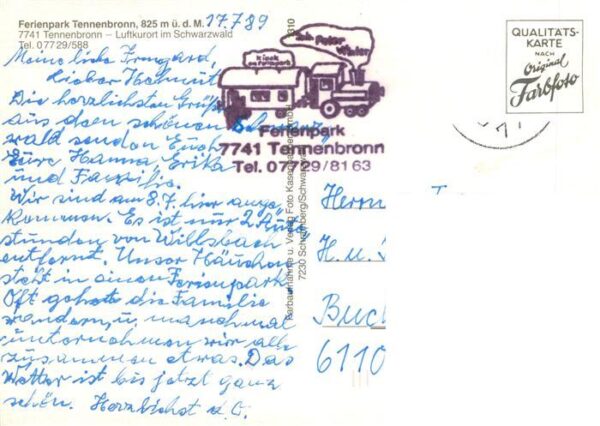 Ferienpark Tennenbronn, 825 m ü. d. M.
7741 Tennenbronn – Luftkurort im Schwarzwald
Tel. 07729/588
17.7.89
Meine liebe Irmgard,
Lieber Helmut
Die herzlichsten Grüße
aus dem schönen Schwarz
wald senden Euch
Eure Hanna, Erika
und Familie.
Wir sind am 8.7. hier ange
kommen. Es ist nur 2 Auto
stunden von Willsbach
entfernt. Unser Häuschen
steht in einen Ferienpark
Oft geht die Familie
wandern, u. manchmal
unternehmen wir alle
zusammen etwas. Das
Wetter ist bis jetzt ganz
schön. Herzlichst d. O.
Kiosk
am Ferienpark
Peter
Winter
Ferienpark
7741 Tennenbronn
Tel. 07729/8163
310
Farbaufnahme u. Verlag Foto
7230 Schramberg/Schwarzwald
QUALITÄTS-
KARTE
NACH
Original
Farbfoto
71
Herrn
H. u.
Buc
6110